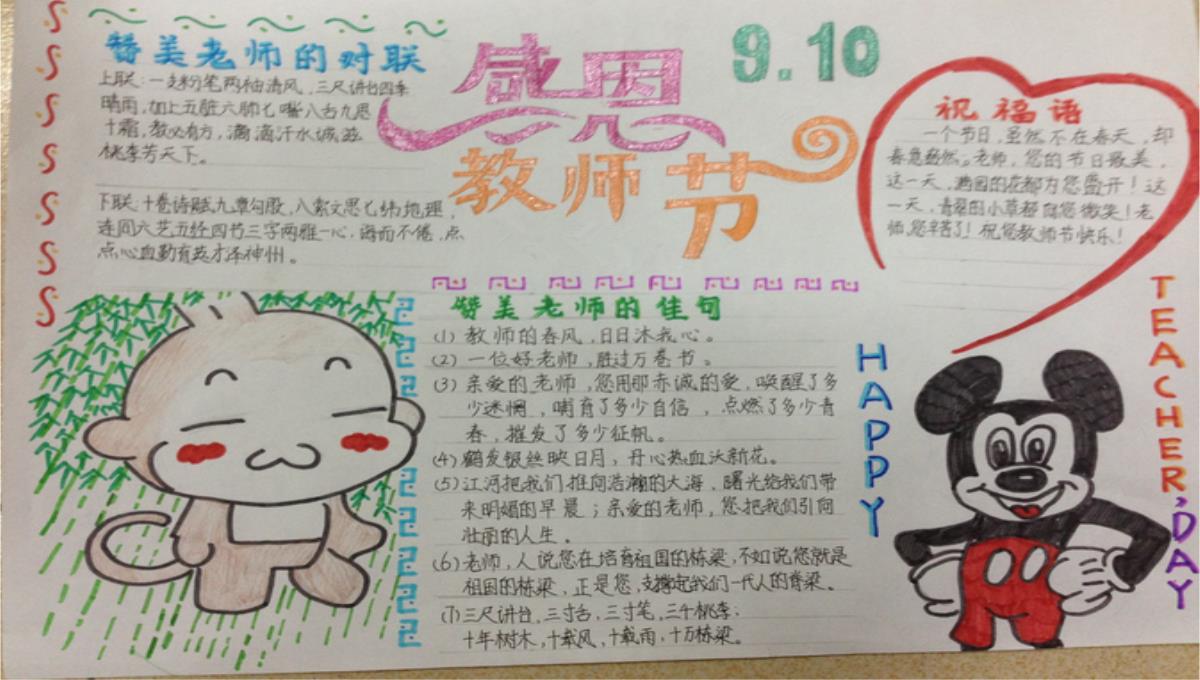 赞美老师的对联
上联：一支粉笔两袖清风，三尺讲台四季
晴雨，加上五脏六肺七嘴八舌九思
十霜，教必有方，滴滴汗水诚滋
桃李芳天下。
下联：十卷诗赋九章勾股，八索文思七纬地理，
连同六艺五经四书三字两雅一心，诲而不倦，点
点心血勤育英才泽神州。
感恩
教师节
9.10
祝福语
一个节日，虽然不在春天，却
春意盎然。老师，您的节日最美，
这一天，满园的花都为您盛开！这
一天，青翠的小草都向您微笑！老
师，您辛苦了！祝您教师节快乐！
赞美老师的佳句
(1) 教师的春风，日日沐我心。
(2) 一位好老师，胜过万卷书。
(3) 亲爱的老师，您用那赤诚的爱，唤醒了多
少迷惘，哺育了多少自信，点燃了多少青
春，摧发了多少征帆。
(4) 鹤发银丝映日月，丹心热血沃新花。
(5) 江河把我们推向浩瀚的大海，曙光给我们带
来明媚的早晨；亲爱的老师，您把我们引向
壮丽的人生。
(6) 老师，人说您在培育祖国的栋梁，不如说您就是
祖国的栋梁，正是您，支撑起我们一代人的脊梁。
(7) 三尺讲台，三寸舌，三寸笔，三千桃李；
十年树木，十载风，十载雨，十万栋梁。
HAPPY
TEACHER'DAY